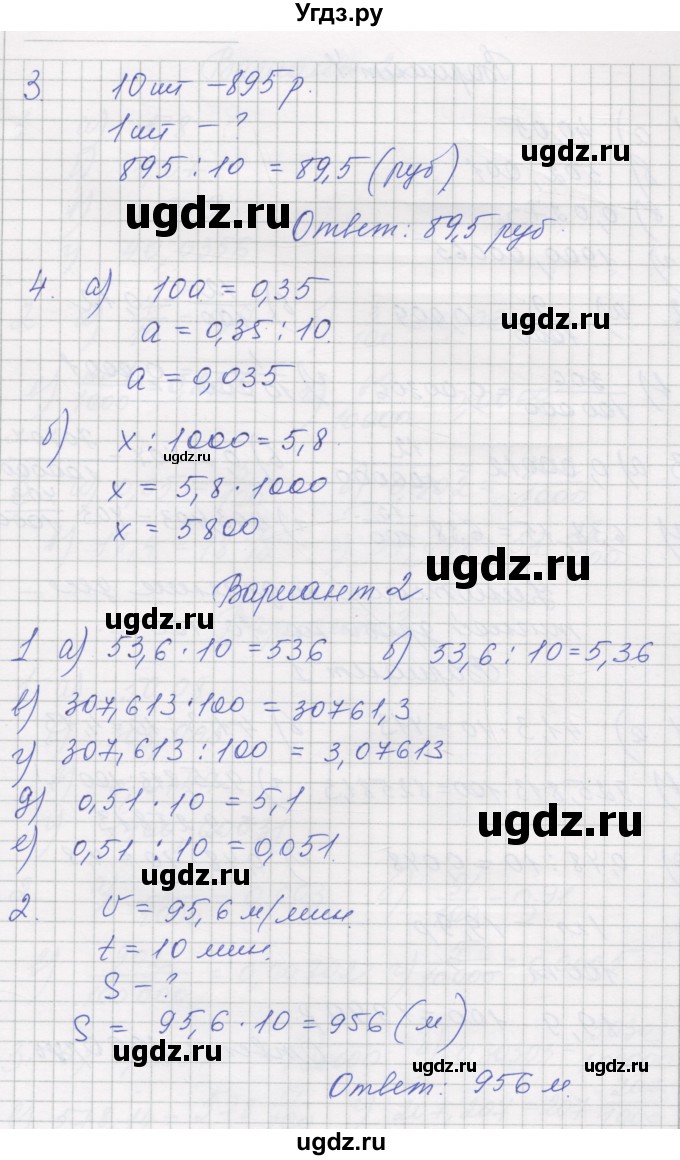 Угдз.ру
3. 10 шт – 895 р.
1 шт – ?
895 : 10 = 89,5 (руб)
ugdz.ru
ugdz.ru
Ответ: 89,5 руб.
4. а) 10а = 0,35
ugdz.ru
а = 0,35 : 10.
а = 0,035
б) х : 1000 = 5,8.
ugdz.ru
х = 5,8 · 1000
х = 5800
ugdz.ru
Вариант 2
ugdz.ru
1 а) 53,6 · 10 = 536 б) 53,6 : 10 = 5,36
в) 307,613 · 100 = 30761,3
г) 307,613 : 100 = 3,07613
д) 0,51 · 10 = 5,1
ugdz.ru
е) 0,51 : 10 = 0,051.
ugdz.ru
2. υ = 95,6 м/мин.
t = 10 мин.
S – ?
S = 95,6 · 10 = 956 (м)
ugdz.ru
ugdz.ru
Ответ: 956 м.
ugdz.ru